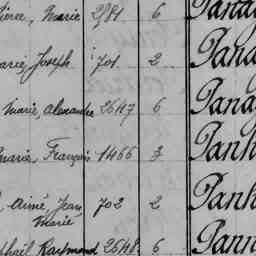 Pierre, Marie 2981 6 Pana
Marie, Joseph 701 2 Pana
Marie, Alexandre 2647 6 Pana
Marie, François 1466 3 Panh
Aimé, Jean Marie 702 2 Panh
Raymond 2648 6 Pann